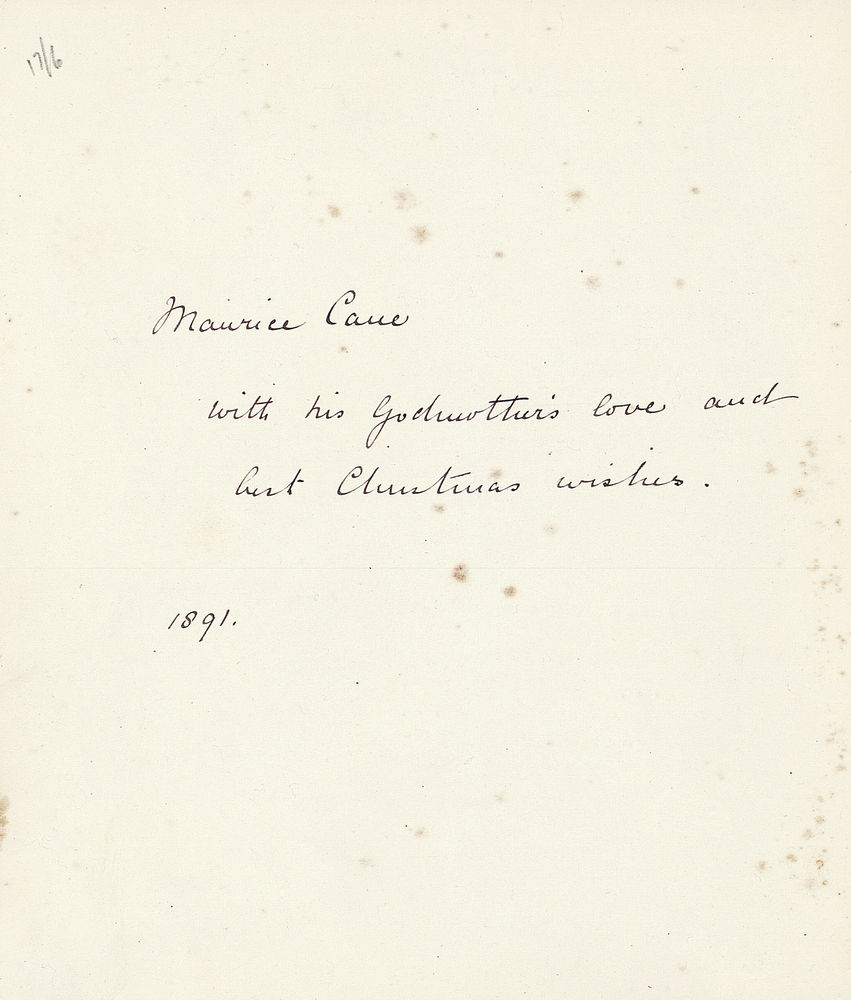 17/6
Maurice Cane
with his Godmother's love and
best Christmas wishes.
1891.